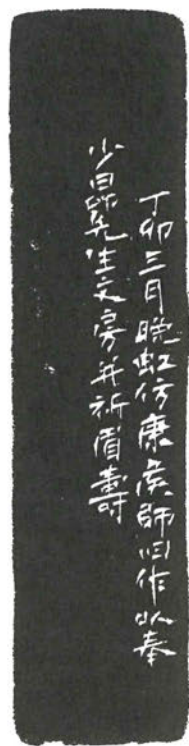 丁卯三月晩虹仿康矦師旧作以奉
少昂先生文房并祈眉壽